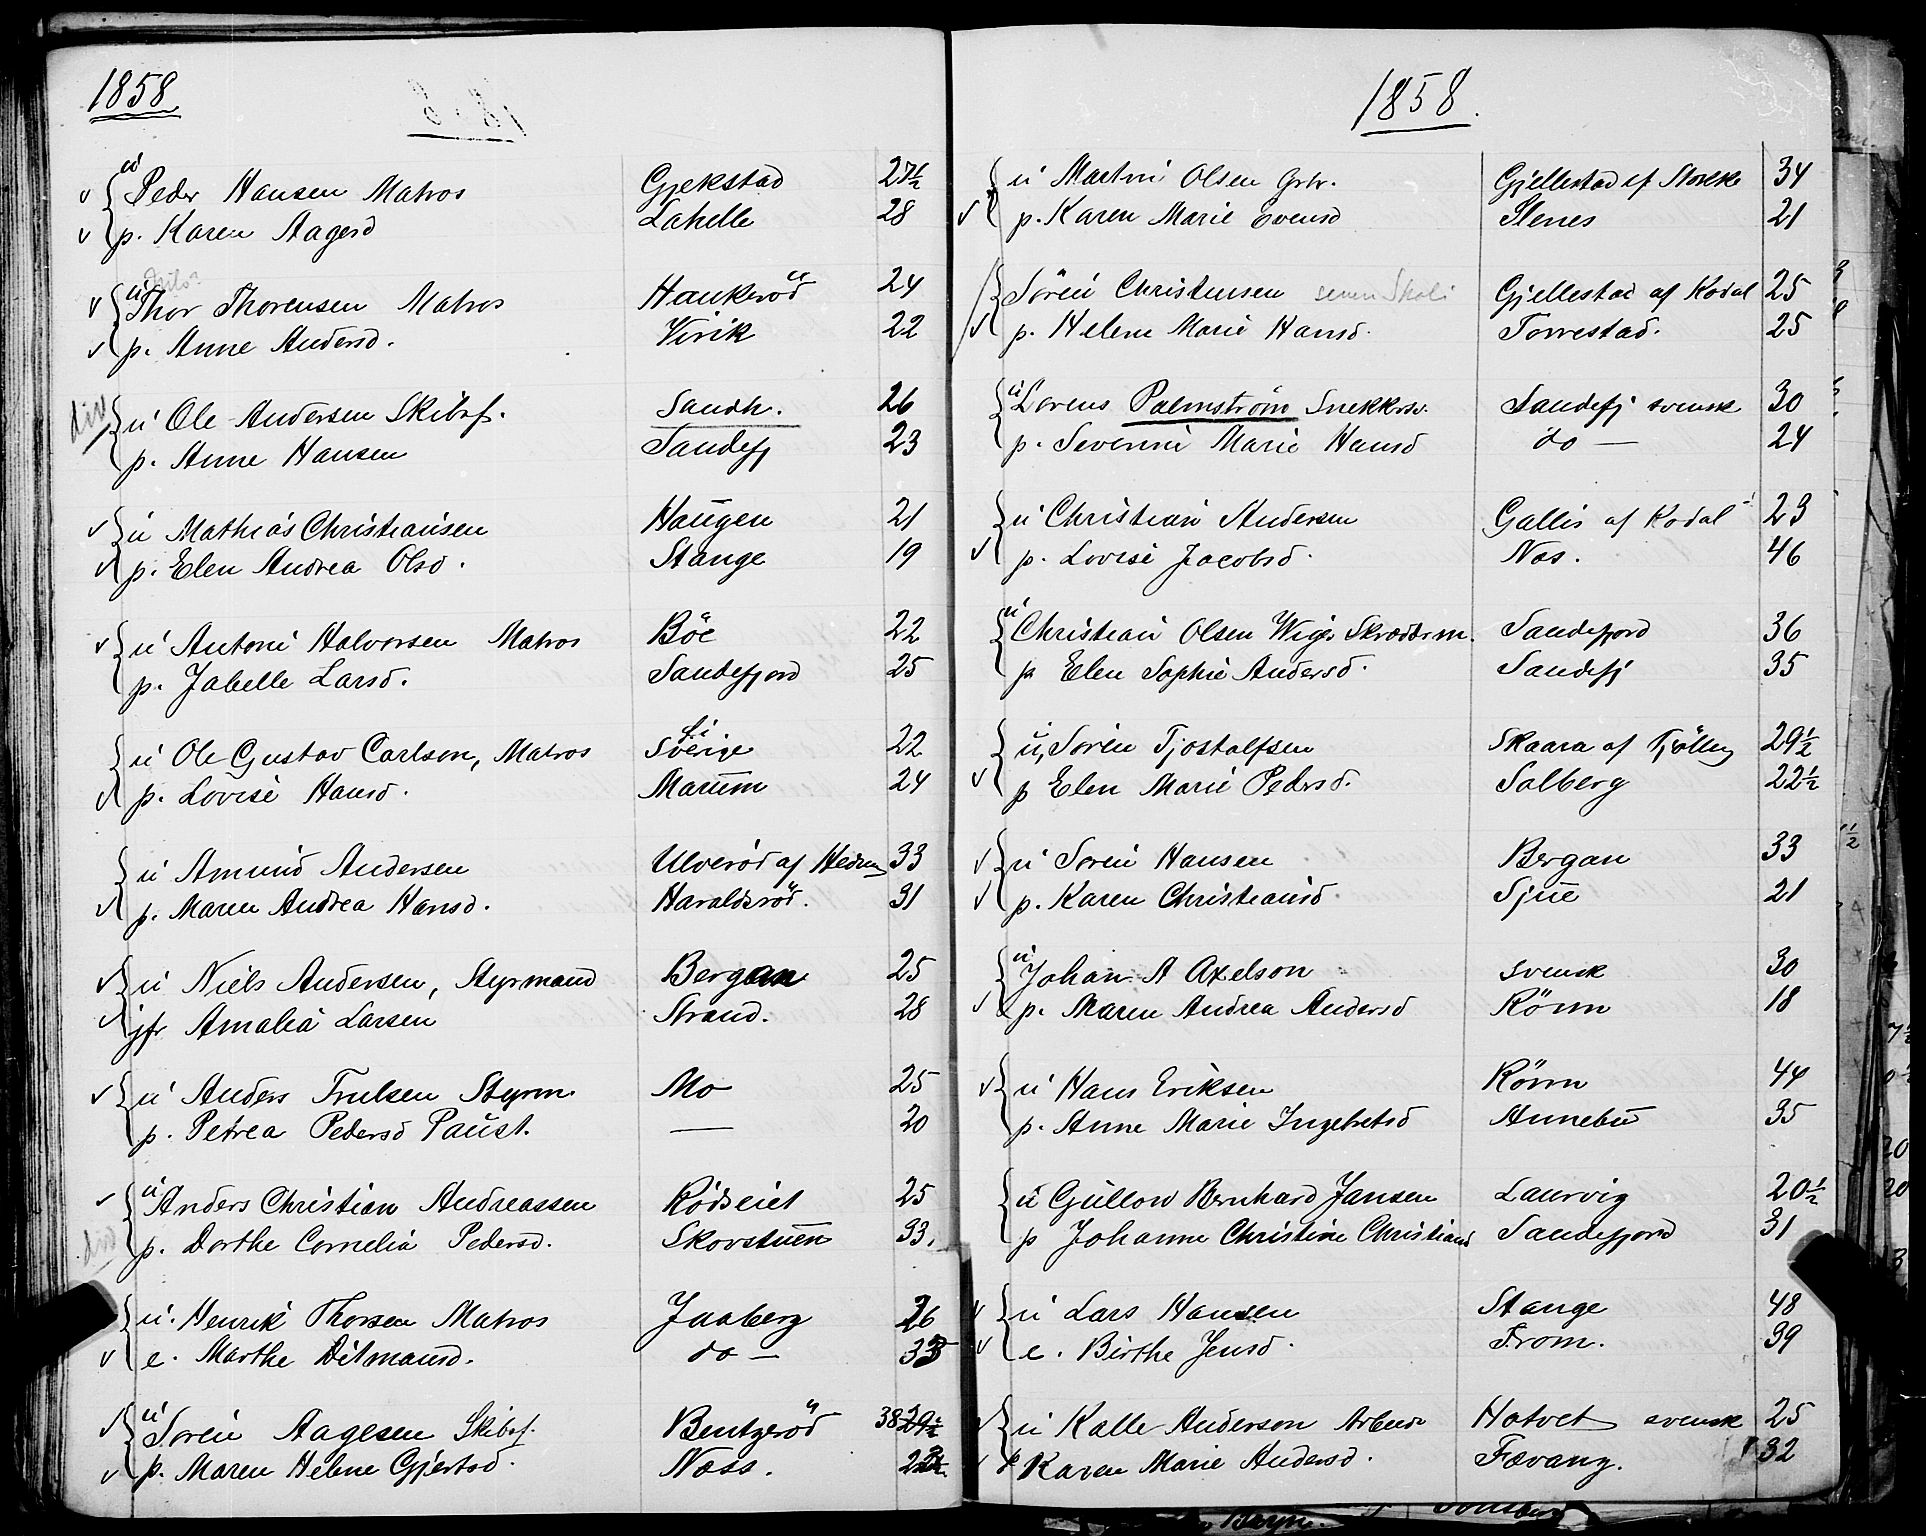 1858
u Peder Hansen Matros Gjekstad 27½
p. Karen Aagesd Lahelle 28
u Thor Thorensen Matros Haukeröd 24
p. Anne Andersd. Virik 22
u Ole Andersen Skibsf. Sandh. 26
p. Anne Hansen Sandefj 23
u Mathias Christiansen Haugen 21
p. Elen Andrea Olsd. Stange 19
u Antoni Halvorsen Matros Böe 22
p. Jabelle Larsd. Sandefjord 25
u Ole Gustav Carlson, Matros Sverige 22
p. Lovise Hansd. Marum 24
u Amund Andersen Ulveröd af Hedrum 33
p. Maren Andrea Hansd. Haraldsröd. 31
u Niels Andersen, Styrmand Bergan 25
jfr Amalia Larsen Strand. 28
u Anders Trulsen Styrm. Mo 25
p. Petrea Pedersd Paust. — 20
u Anders Christian Andreassen Rödseiet 25
p. Dorthe Cornelia Pedersd. Skovstuen 33.
u. Henrik Thorsen Matros Jaaberg 26
e. Marthe Ditmansd. do — 33
u Soren Aagesen Skibsf. Bentzeröd 38
p. Maren Helene Gjertsd. Næss.
1858.
u Martin Olsen Grbr. Gjellestad af Stokke 34
p. Karen Marie Evensd Stenes 21
Sören Christensen Gjellestad af Kodal 25
p. Helene Marie Hansd. Torrestad. 25
u Lorens Palmström Snekkersv. Sandefj svensk 30
p. Severine Marie Hansd do — 24
u Christian Andersen Gallis af Kodal 23
p. Lovise Jacobsd. Nes. 46
u Christian Olsen Wiger Skrædderm. Sandefjord 36
p Elen Sophie Andersd. Sandefj 35
u, Soren Tjostolfsen Skaara af Tjölling 29½
p Elen Marie Pedersd. Solberg 22½
u Soren Hansen Bergan 33
p. Karen Christiansd. Sjue 21
u Johan A Axelson svensk 30
p. Maren Andrea Andersd Rönn 18
u Hans Eriksen Rönn 44
p. Anne Marie Ingebretsd Annebu 35
u Gullow Bernhard Jansen Laurvig 20½
p Johanne Christine Christiansd Sandefjord 31
u Lars Hansen Stange 48
e. Birthe Jensd. From. 39
u Kalle Anderson Arbeid Hotvet svensk 25
p Karen Marie Andersd. Fævang. 32